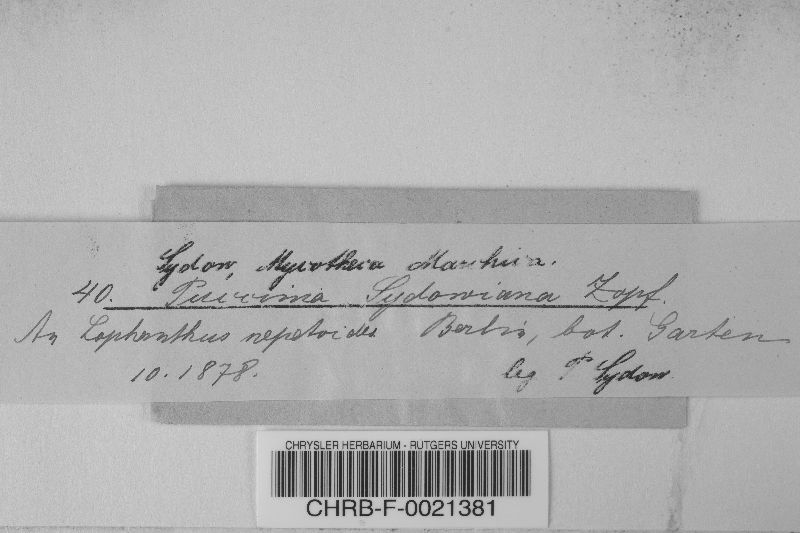 Sydow, Mycotheca Marchica.
40. Puccinia Sydowiana Zopf.
An Lophanthus nepetoides Berlin, bot. Garten
10. 1878. leg P. Sydow
CHRYSLER HERBARIUM - RUTGERS UNIVERSITY
CHRB-F-0021381